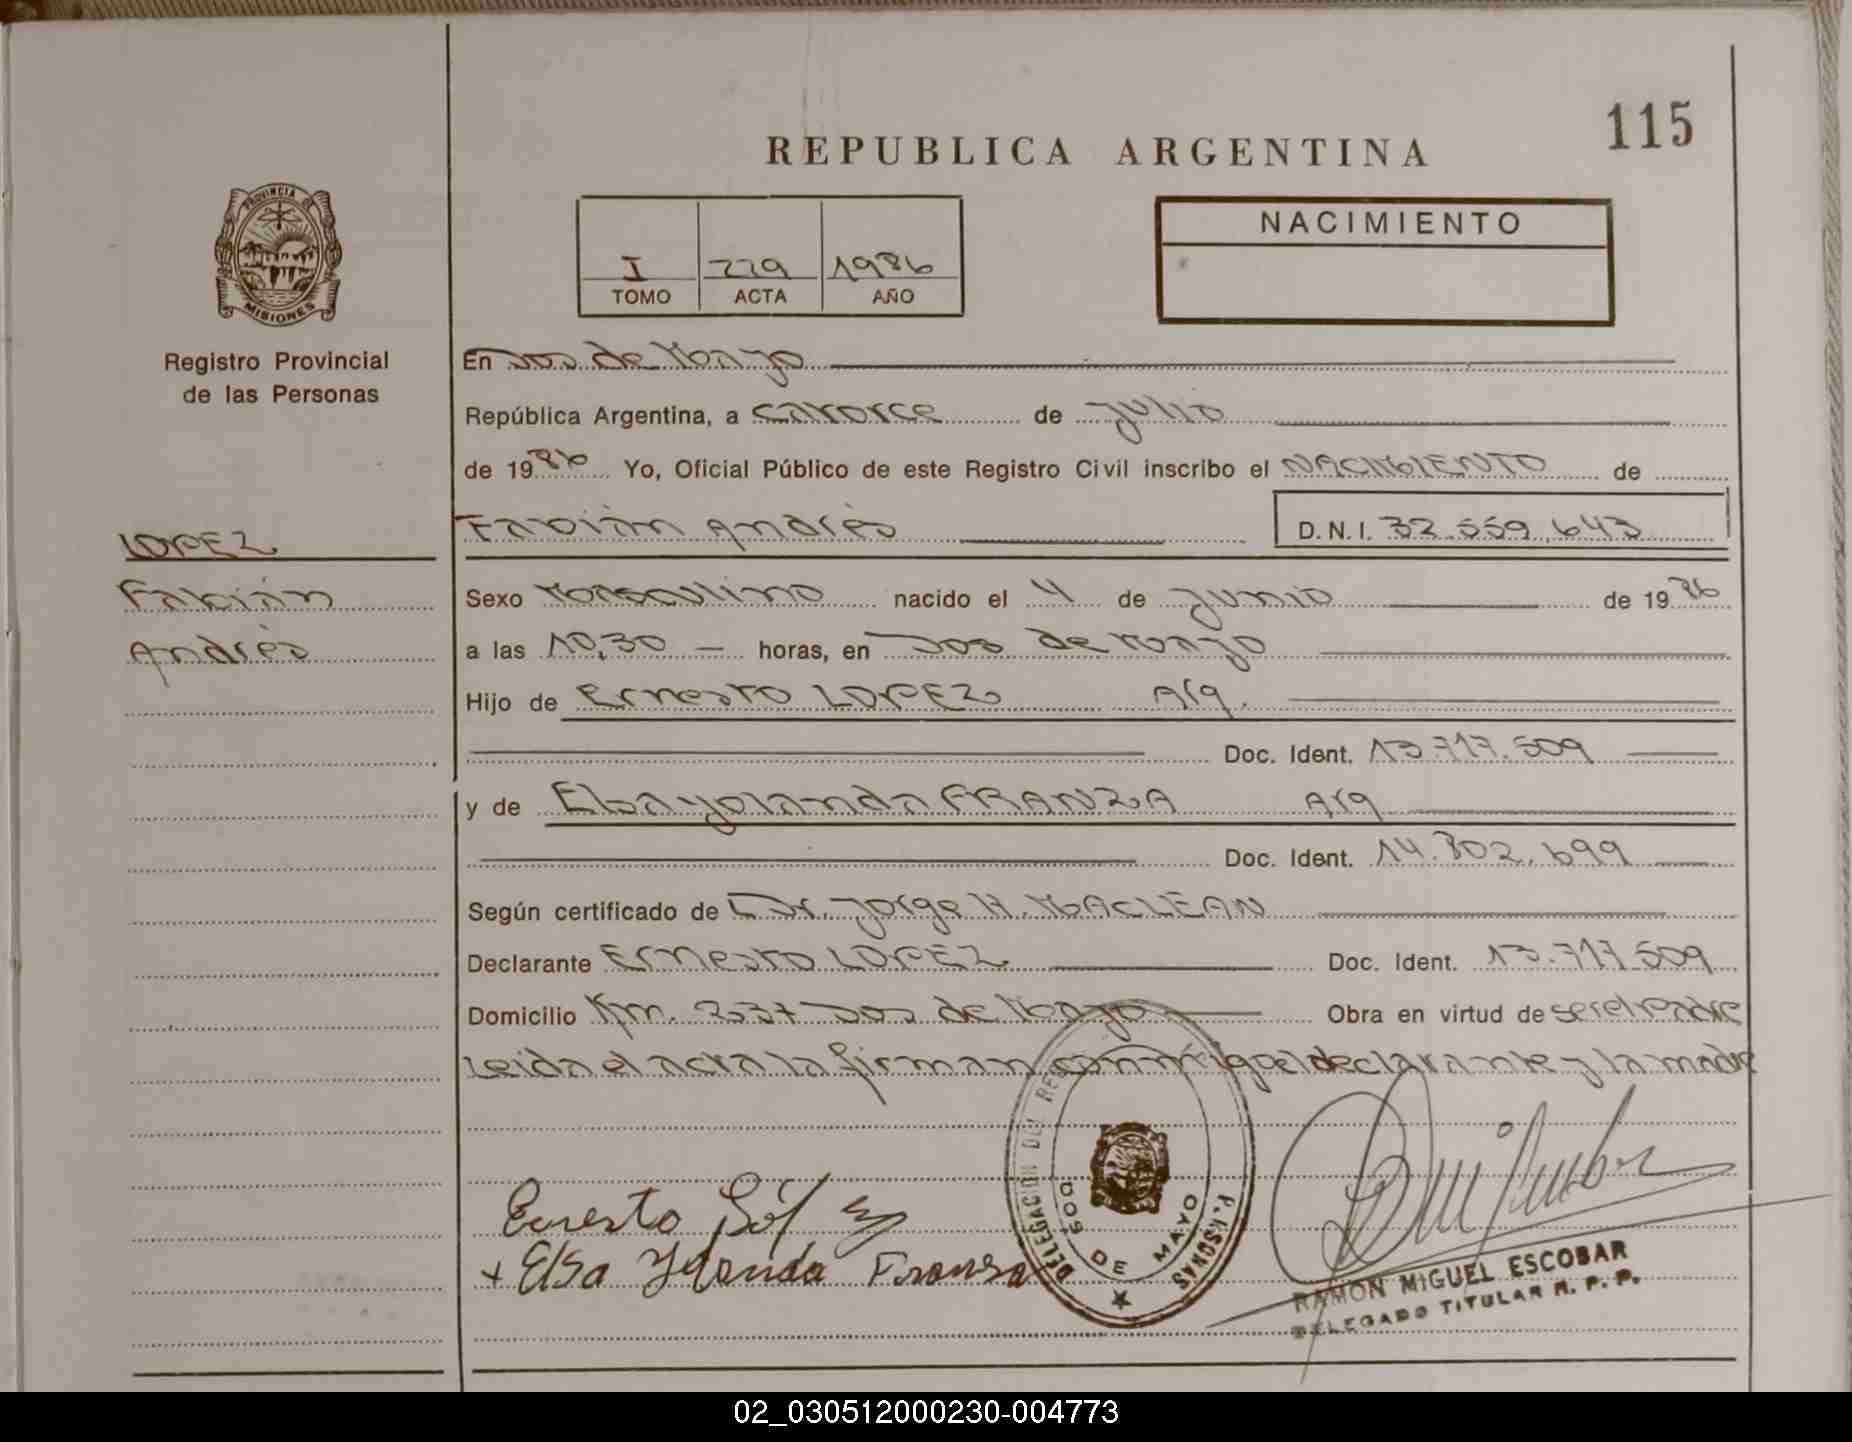 115
REPUBLICA ARGENTINA
PROVINCIA DE
MISIONES
Registro Provincial
de las Personas
I 229 1986
TOMO ACTA AÑO
NACIMIENTO
En Dos de Mayo
República Argentina, a catorce de Julio
de 1986 Yo, Oficial Público de este Registro Civil inscribo el NACIMIENTO de
Fabián Andrés D.N.I. 32.559.643
LOPEZ
Fabián
Andrés
Sexo Masculino nacido el 4 de Junio de 1986
a las 10,30 — horas, en Dos de Mayo
Hijo de Ernesto LOPEZ Arg.
Doc. Ident. 13.717.509
y de Elsa Yolanda FRANZA Arg
Doc. Ident. 14.802.699
Según certificado de Dr. Jorge H. MACLEAN
Declarante Ernesto LOPEZ Doc. Ident. 13.717.509
Domicilio Km. 237 Dos de Mayo Obra en virtud de ser el Padre
Leida el acta la firman conmigo el declarante y la madre
Ernesto
+ Elsa Yolanda Fransa
DELEGACION DEL REG PERSONAS
DOS DE MAYO
RAMON MIGUEL ESCOBAR
DELEGADO TITULAR R. P. P.
02_030512000230-004773